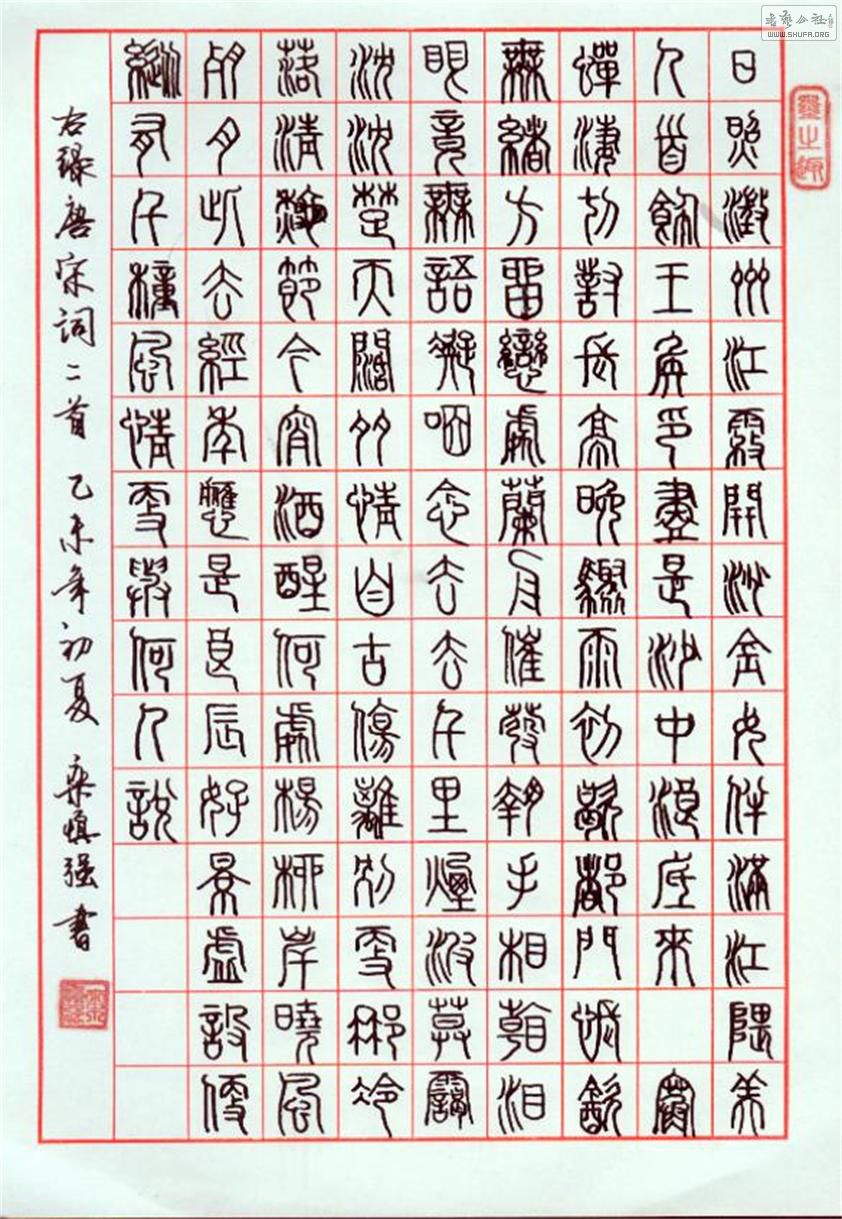 书艺公社
WWW.SHUFA.ORG
墨之趣
日照澂州江霧開淘金女伴滿江隈美
人首飾王侯印盡是沙中浪底來 寒
蟬淒切對長亭晚驟雨初歇都門帳飲
無緒方留戀處蘭舟催發執手相看淚
眼竟無語凝咽念去去千里煙波暮靄
沈沈楚天闊多情自古傷離別更那冷
落清秋節今宵酒醒何處楊柳岸曉風
殘月此去經年應是良辰好景虛設便
縱有千種風情更與何人說
右録唐宋词二首 乙未年初夏 栾慎强书